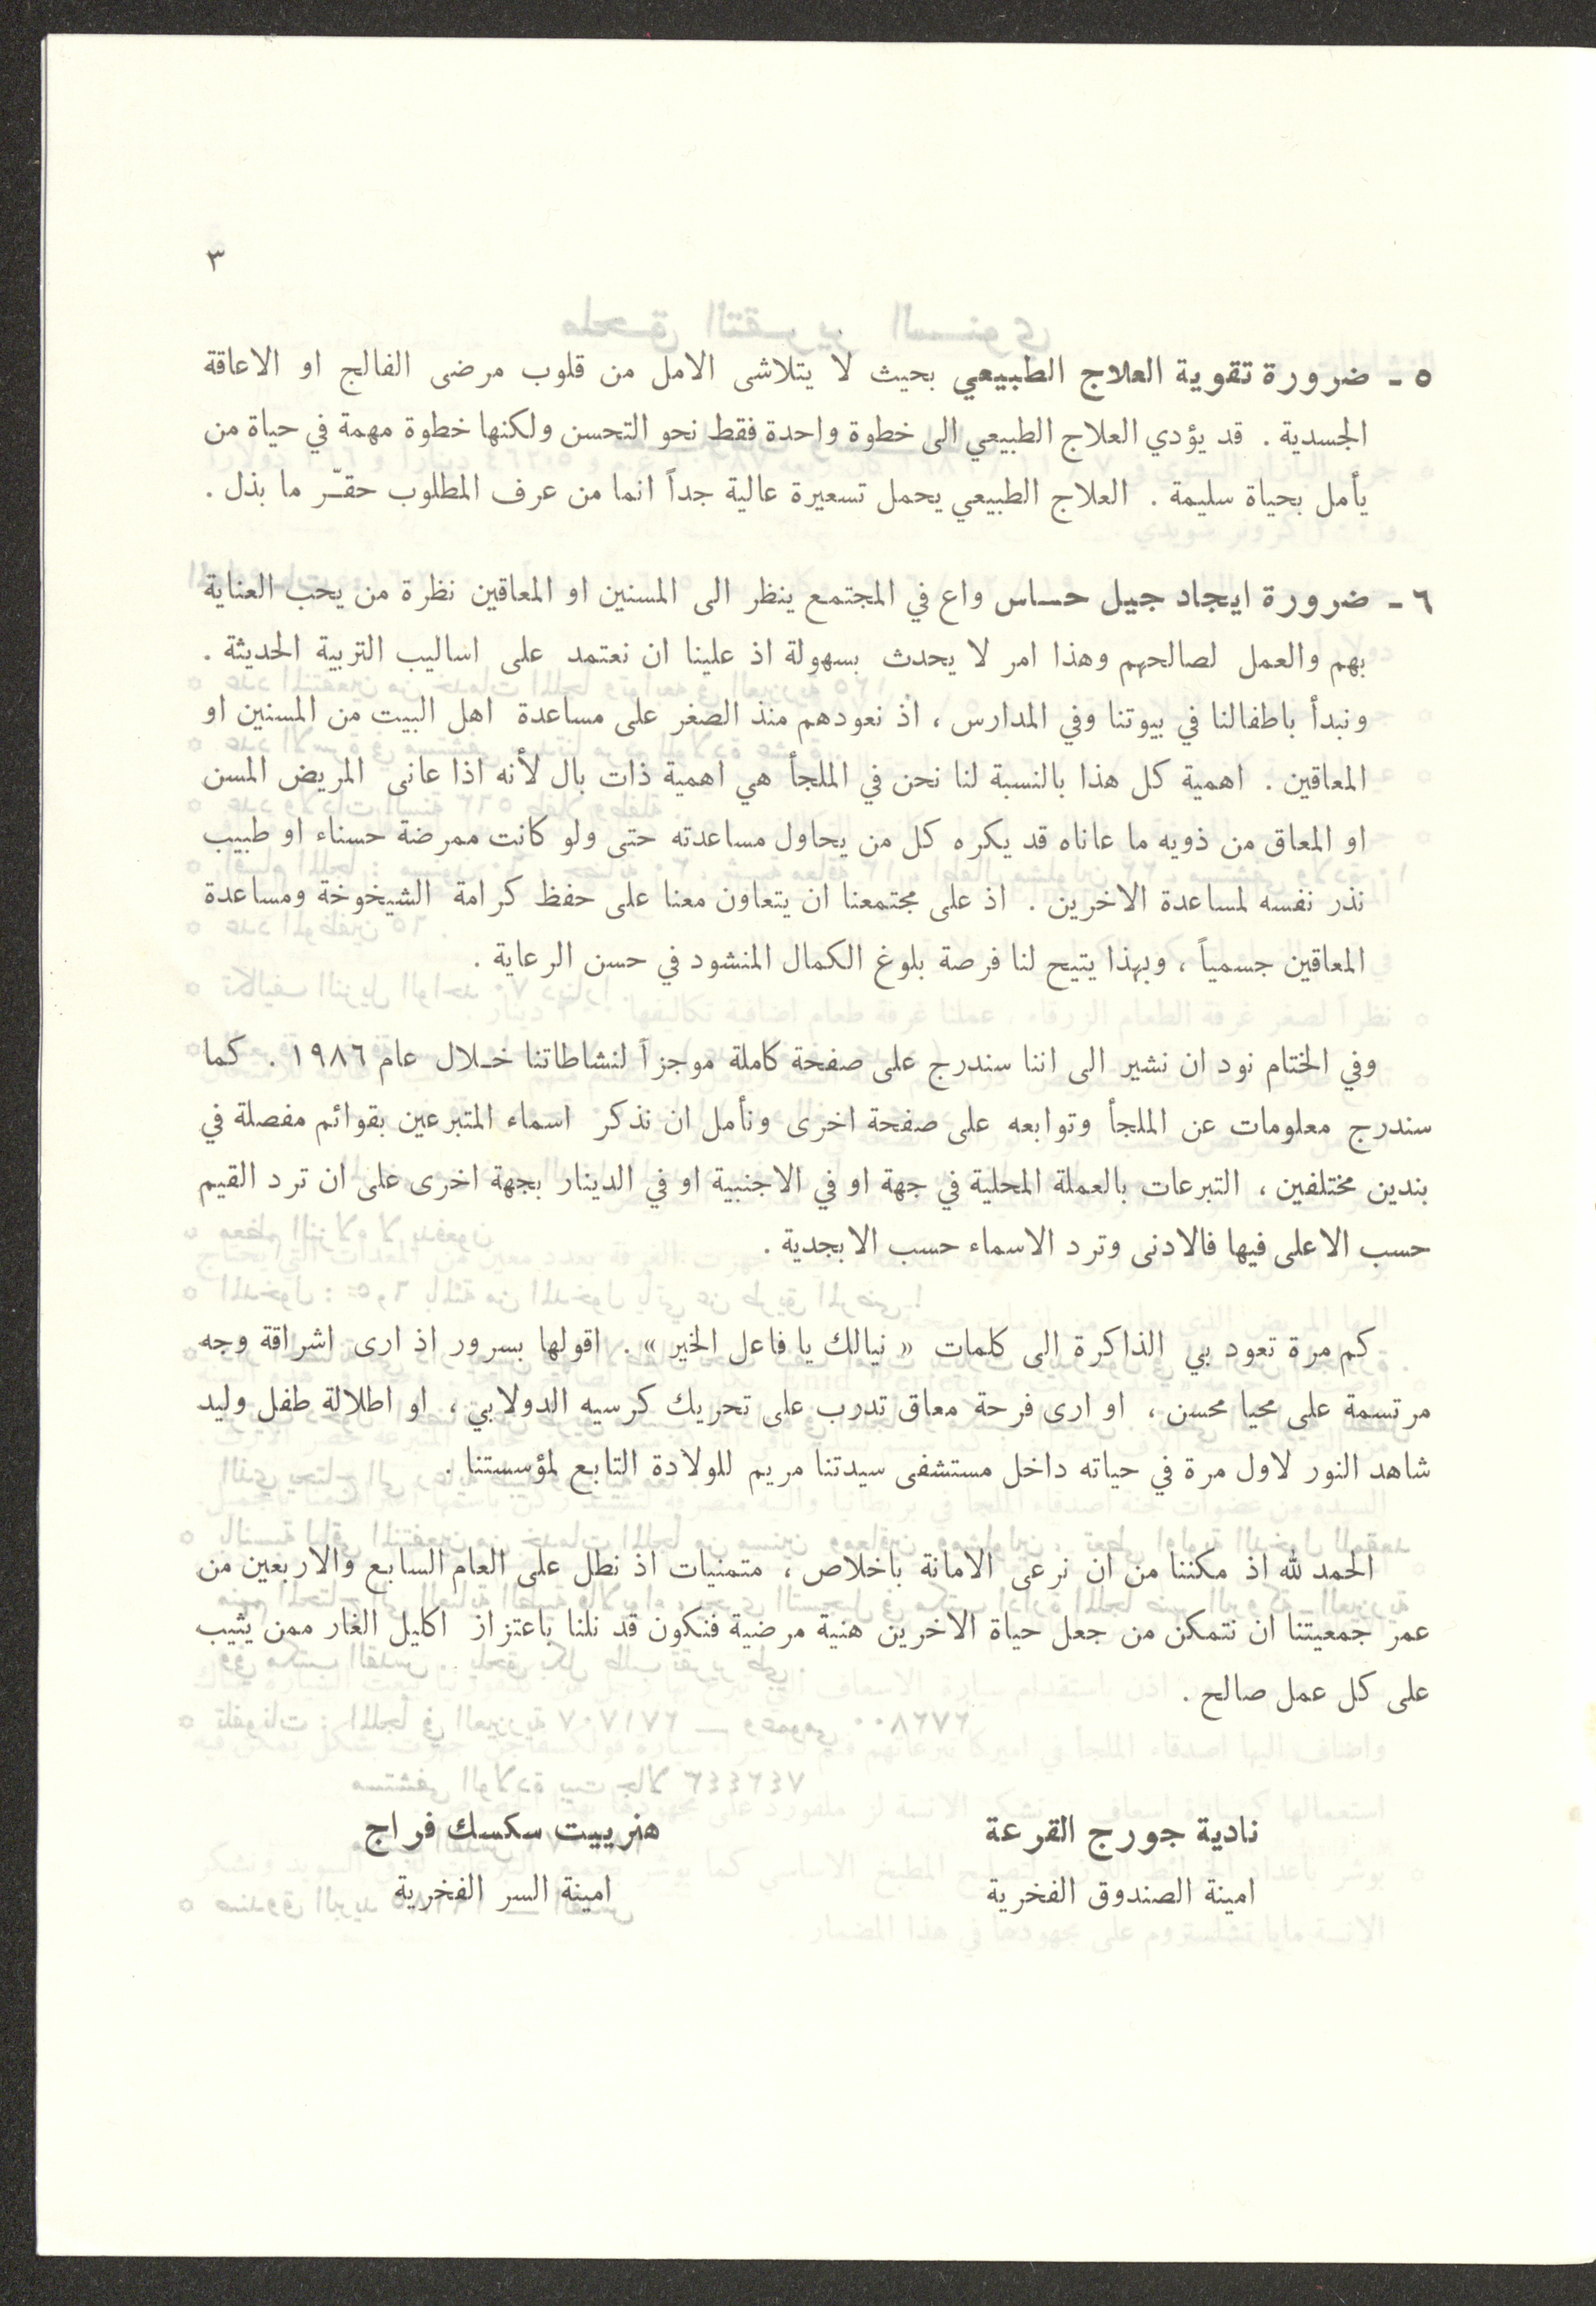 ٣
٥ - ضرورة تقوية العلاج الطبيعي بحيث لا يتلاشى الامل من قلوب مرضى الفالج او الاعاقة
الجسدية . قد يؤدي العلاج الطبيعي الى خطوة واحدة فقط نحو التحسن ولكنها خطوة مهمة في حياة من
يأمل بحياة سليمة . العلاج الطبيعي يحمل تسعيرة عالية جداً انما من عرف المطلوب حقّر ما بذل .
٦ - ضرورة ايجاد جيل حساس واع في المجتمع ينظر الى المسنين او المعاقين نظرة من يحب العناية
بهم والعمل لصالحهم وهذا امر لا يحدث بسهولة اذ علينا ان نعتمد على اساليب التربية الحديثة .
ونبدأ باطفالنا في بيوتنا وفي المدارس ، اذ نعودهم منذ الصغر على مساعدة اهل البيت من المسنين او
المعاقين . اهمية كل هذا بالنسبة لنا نحن في الملجأ هي اهمية ذات بال لأنه اذا عانى المريض المسن
او المعاق من ذويه ما عاناه قد يكره كل من يحاول مساعدته حتى ولو كانت ممرضة حسناء او طبيب
نذر نفسه لمساعدة الاخرين . اذ على مجتمعنا ان يتعاون معنا على حفظ كرامة الشيخوخة ومساعدة
المعاقين جسمياً ، وبهذا يتيح لنا فرصة بلوغ الكمال المنشود في حسن الرعاية .
وفي الختام نود ان نشير الى اننا سندرج على صفحة كاملة موجزاً لنشاطاتنا خلال عام ١٩٨٦ . كما
سندرج معلومات عن الملجأ وتوابعه على صفحة اخرى ونأمل ان نذكر اسماء المتبرعين بقوائم مفصلة في
بندين مختلفين ، التبرعات بالعملة المحلية في جهة او في الاجنبية او في الدينار بجهة اخرى على ان ترد القيم
حسب الاعلى فيها فالادنى وترد الاسماء حسب الابجدية .
كم مرة تعود بي الذاكرة الى كلمات « نيالك يا فاعل الخير » . اقولها بسرور اذ ارى اشراقة وجه
مرتسمة على محيا محسن ، او ارى فرحة معاق تدرب على تحريك كرسيه الدولابي ، او اطلالة طفل وليد
شاهد النور لاول مرة في حياته داخل مستشفى سيدتنا مريم للولادة التابع لمؤسستنا .
الحمد لله اذ مكننا من ان نرعى الامانة باخلاص ، متمنيات اذ نطل على العام السابع والاربعين من
عمر جمعيتنا ان نتمكن من جعل حياة الاخرين هنية مرضية فنكون قد نلنا باعتزاز اكليل الغار ممن يثيب
على كل عمل صالح .
نادية جورج القرعة هنرييت سكسك فراج
امينة الصندوق الفخرية امينة السر الفخرية